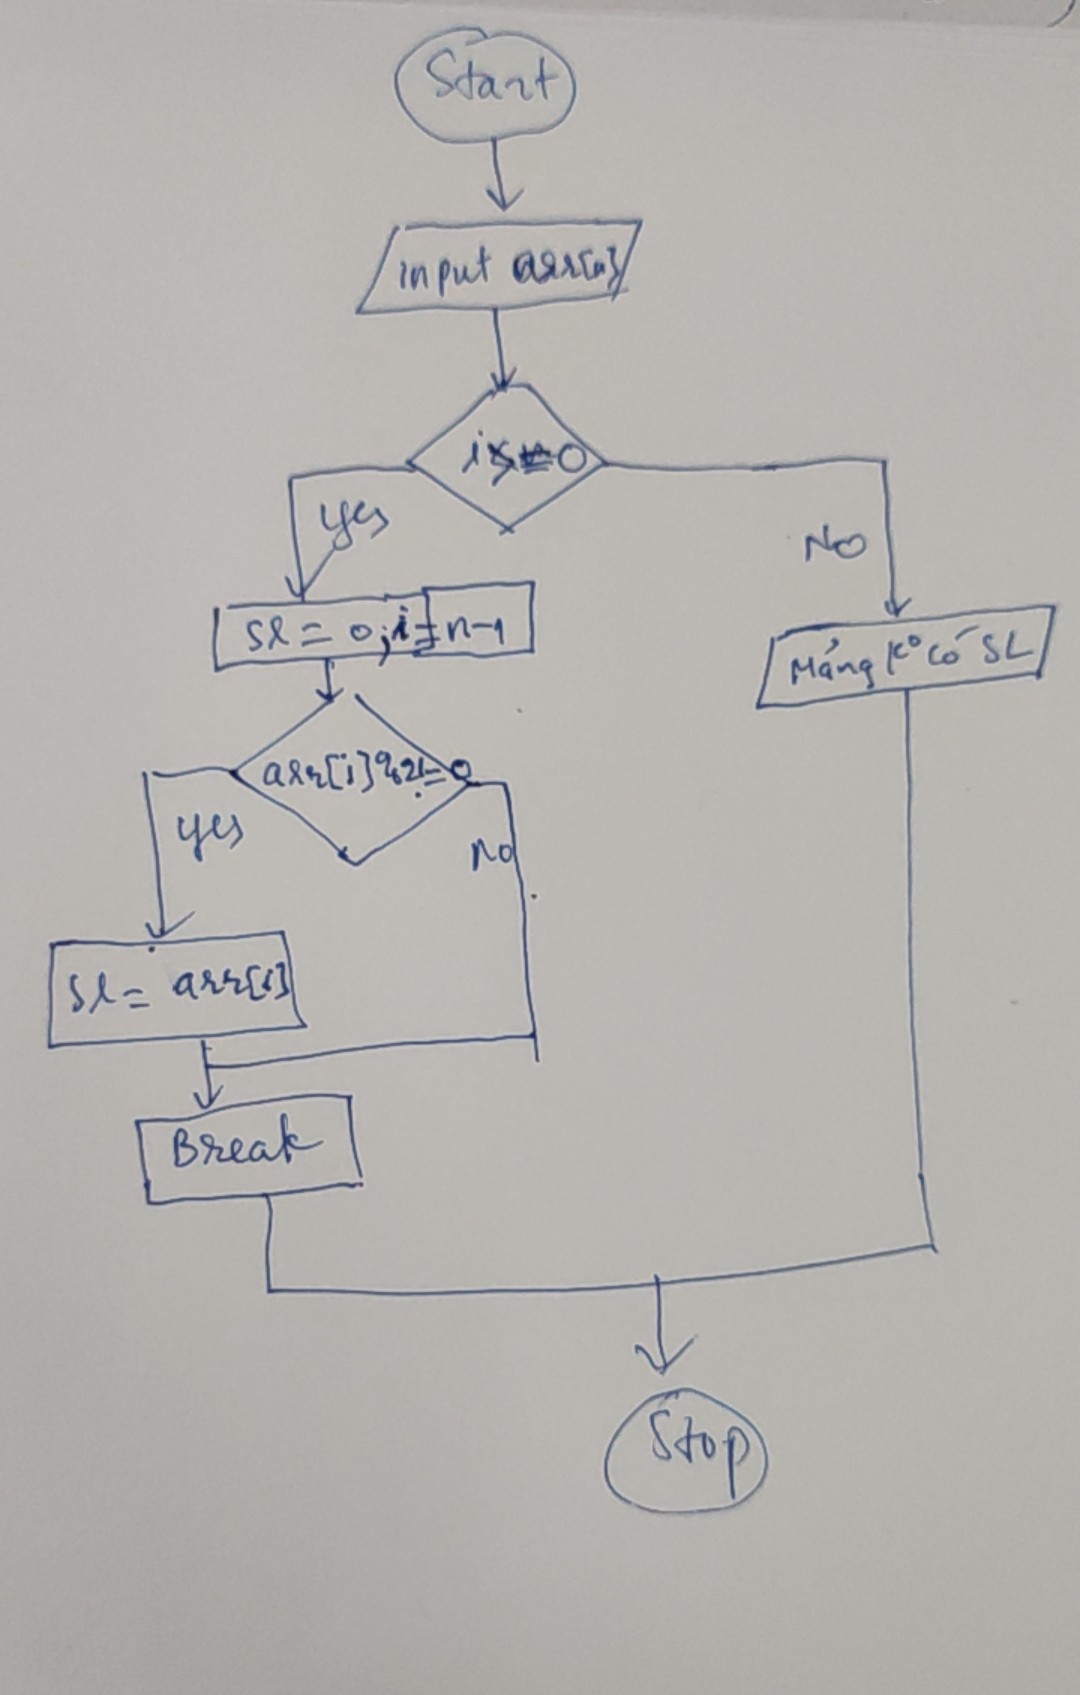 Start
input arr[n]
yes
No
sl = 0; i = n-1
Mảng k° có SL
arr[i]%2!=0
yes
no
sl = arr[i]
Break
Stop